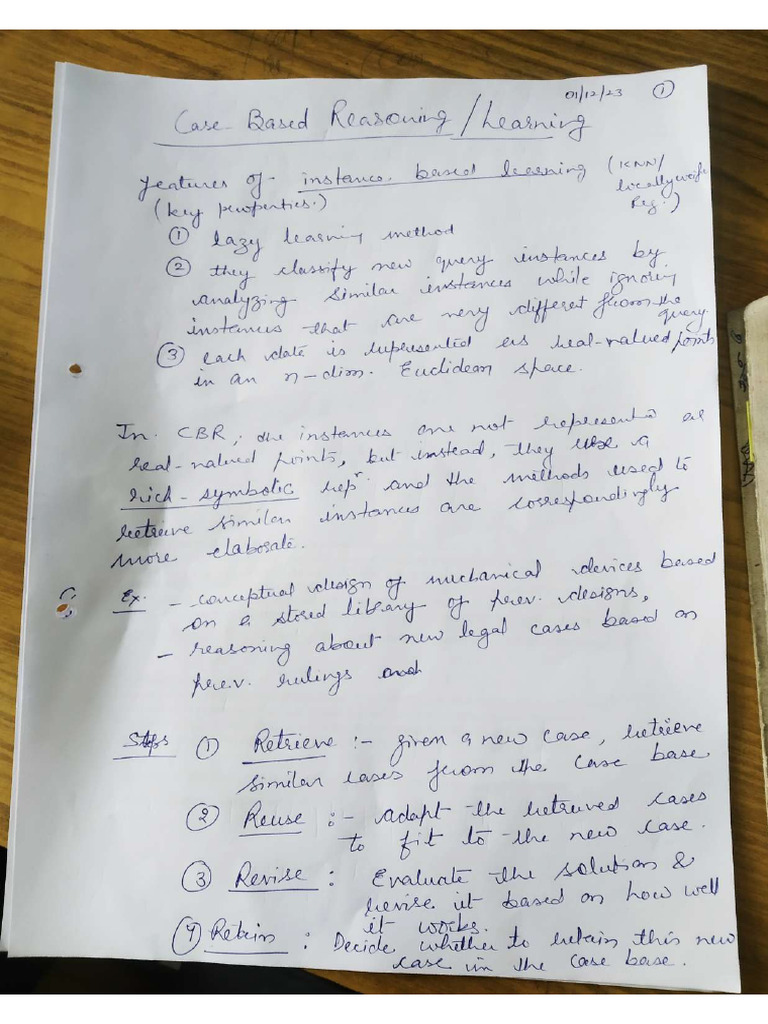 01/12/23 ①
Case-Based Reasoning/Learning
features of instance based learning (KNN/
locally weigh
(key properties.) Reg.)
① lazy learning method
② they classify new query instances by
analyzing similar instances while ignoring
instances that are very different from the
query
③ each data is represented as real-valued points
in an n-dim. Euclidean space.
In CBR, the instances are not represented as
real-valued points, but instead, they use a
rich-symbolic repr and the methods used to
retrieve similar instances are correspondingly
more elaborate.
Ex. - conceptual design of mechanical devices based
on a stored library of prev. designs,
- reasoning about new legal cases based on
prev. rulings and
Steps ① Retrieve :- given a new case, retrieve
similar cases from the case base.
② Reuse :- adapt the retrieved cases
to fit to the new case.
③ Revise : Evaluate the solution &
revise it based on how well
it works.
④ Retain : Decide whether to retain this new
case in the case base.